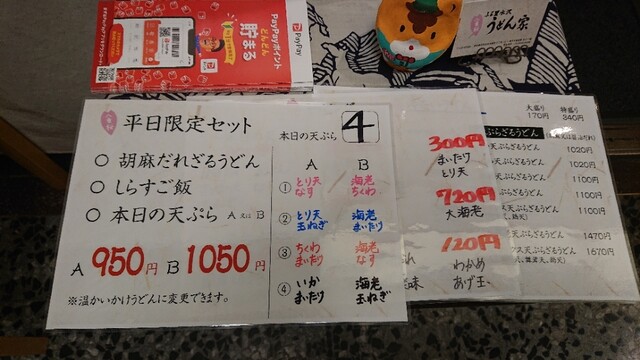 PayPayポイント
どんどん
貯まる
PayPay
うどん家
平日限定セット
○ 胡麻だれざるうどん
○ しらすご飯
○ 本日の天ぷら A 又は B
A 950円 B 1050円
※温かいかけうどんに変更できます。
本日の天ぷら 4
A B
① とり天 なす 海老 ちくわ
② とり天 玉ねぎ 海老 まいたけ
③ ちくわ まいたけ 海老 なす
④ いか まいたけ 海老 玉ねぎ
300円
まいたけ
とり天
720円
大海老
120円
わかめ
あげ玉
大盛り 特盛り
170円 340円
ぷらざるうどん
1020円
天ぷらざるうどん 1020円
ぷらざるうどん 1100円
天ぷらざるうどん 1100円
天ぷらざるうどん 1470円
クス天ぷらざるうどん 1670円